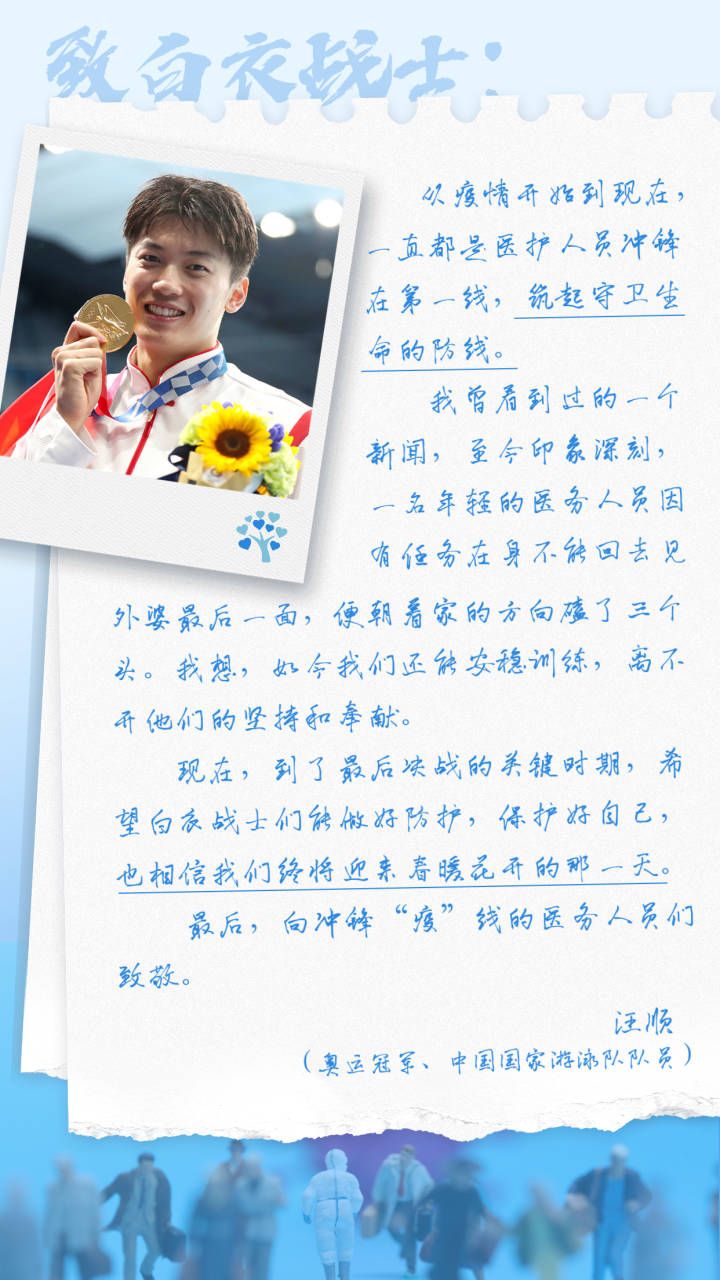 致白衣战士：
从疫情开始到现在，
一直都是医护人员冲锋
在第一线，筑起守卫生
命的防线。
我曾看到过的一个
新闻，至今印象深刻，
一名年轻的医务人员因
有任务在身不能回去见
外婆最后一面，便朝着家的方向磕了三个
头。我想，如今我们还能安稳训练，离不
开他们的坚持和奉献。
现在，到了最后决战的关键时期，希
望白衣战士们能做好防护，保护好自己，
也相信我们终将迎来春暖花开的那一天。
最后，向冲锋“疫”线的医务人员们
致敬。
汪顺
（奥运冠军、中国国家游泳队队员）